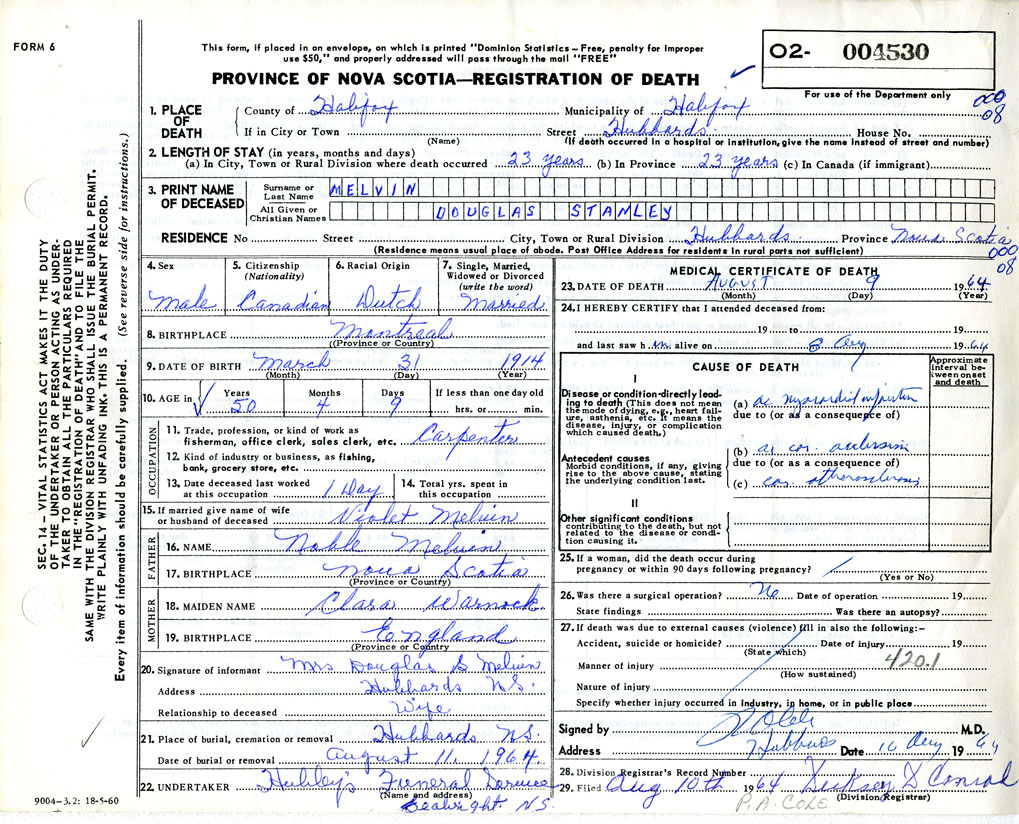 FORM 6
This form, if placed in an envelope, on which is printed "Dominion Statistics – Free, penalty for improper
use $50," and properly addressed will pass through the mail "FREE"
PROVINCE OF NOVA SCOTIA—REGISTRATION OF DEATH
O2- 004530
For use of the Department only
000
08
1. PLACE OF DEATH
County of Halifax Municipality of Halifax
If in City or Town Street Hubbards House No.
(Name) (If death occurred in a hospital or institution, give the name instead of street and number)
2. LENGTH OF STAY (in years, months and days)
(a) In City, Town or Rural Division where death occurred 23 years (b) In Province 23 years (c) In Canada (if immigrant)
3. PRINT NAME OF DECEASED
Surname or Last Name MELVIN
All Given or Christian Names DOUGLAS STANLEY
RESIDENCE No Street City, Town or Rural Division Hubbards Province Nova Scotia
(Residence means usual place of abode. Post Office Address for residents in rural parts not sufficient)
000
08
4. Sex Male
5. Citizenship (Nationality) Canadian
6. Racial Origin Dutch
7. Single, Married, Widowed or Divorced (write the word) Married
8. BIRTHPLACE Montreal
(Province or Country)
9. DATE OF BIRTH March 31 1914
(Month) (Day) (Year)
10. AGE in Years Months Days If less than one day old
50 4 9 hrs. or min.
OCCUPATION
11. Trade, profession, or kind of work as
fisherman, office clerk, sales clerk, etc. Carpenter
12. Kind of industry or business, as fishing,
bank, grocery store, etc.
13. Date deceased last worked
at this occupation 1 Day
14. Total yrs. spent in
this occupation
15. If married give name of wife
or husband of deceased Violet Melvin
FATHER
16. NAME Noble Melvin
17. BIRTHPLACE Nova Scotia
(Province or Country)
MOTHER
18. MAIDEN NAME Clara Warnock
19. BIRTHPLACE England
(Province or Country)
20. Signature of informant Mrs Douglas S Melvin
Address Hubbards N.S.
Relationship to deceased Wife
21. Place of burial, cremation or removal Hubbards N.S.
Date of burial or removal August 11, 1964
22. UNDERTAKER Hubley's Funeral Service
(Name and address)
Seabright N.S.
MEDICAL CERTIFICATE OF DEATH
23. DATE OF DEATH August 9 1964
(Month) (Day) (Year)
24. I HEREBY CERTIFY that I attended deceased from:
19 to 19
and last saw h im alive on 8 Aug 1964
CAUSE OF DEATH
Approximate interval between onset and death
I
Disease or condition directly leading to death (This does not mean
the mode of dying, e.g., heart failure, asthenia, etc. It means the
disease, injury, or complication
which caused death.)
(a) ac myocardial infarction
due to (or as a consequence of)
Antecedent causes
Morbid conditions, if any, giving
rise to the above cause, stating
the underlying condition last.
(b) ac cor. occlusion
due to (or as a consequence of)
(c) cor. atherosclerosis
II
Other significant conditions
contributing to the death, but not
related to the disease or condition causing it.
25. If a woman, did the death occur during
pregnancy or within 90 days following pregnancy?
(Yes or No)
26. Was there a surgical operation? No Date of operation 19
State findings Was there an autopsy?
27. If death was due to external causes (violence) fill in also the following:-
Accident, suicide or homicide? Date of injury 19
(State which)
420.1
Manner of injury
(How sustained)
Nature of injury
Specify whether injury occurred in industry, in home, or in public place
Signed by M.D.
Address Hubbards Date 10 Aug 1964
28. Division Registrar's Record Number
29. Filed Aug 10th 1964 D Conrad
(Division Registrar)
P.A. COLE
SEC. 14 – VITAL STATISTICS ACT MAKES IT THE DUTY
OF THE UNDERTAKER OR PERSON ACTING AS UNDER-
TAKER TO OBTAIN ALL THE PARTICULARS REQUIRED
IN THE "REGISTRATION OF DEATH" AND TO FILE THE
SAME WITH THE DIVISION REGISTRAR WHO SHALL ISSUE THE BURIAL PERMIT.
WRITE PLAINLY WITH UNFADING INK. THIS IS A PERMANENT RECORD.
Every item of information should be carefully supplied. (See reverse side for instructions.)
9004–3.2: 18-5-60